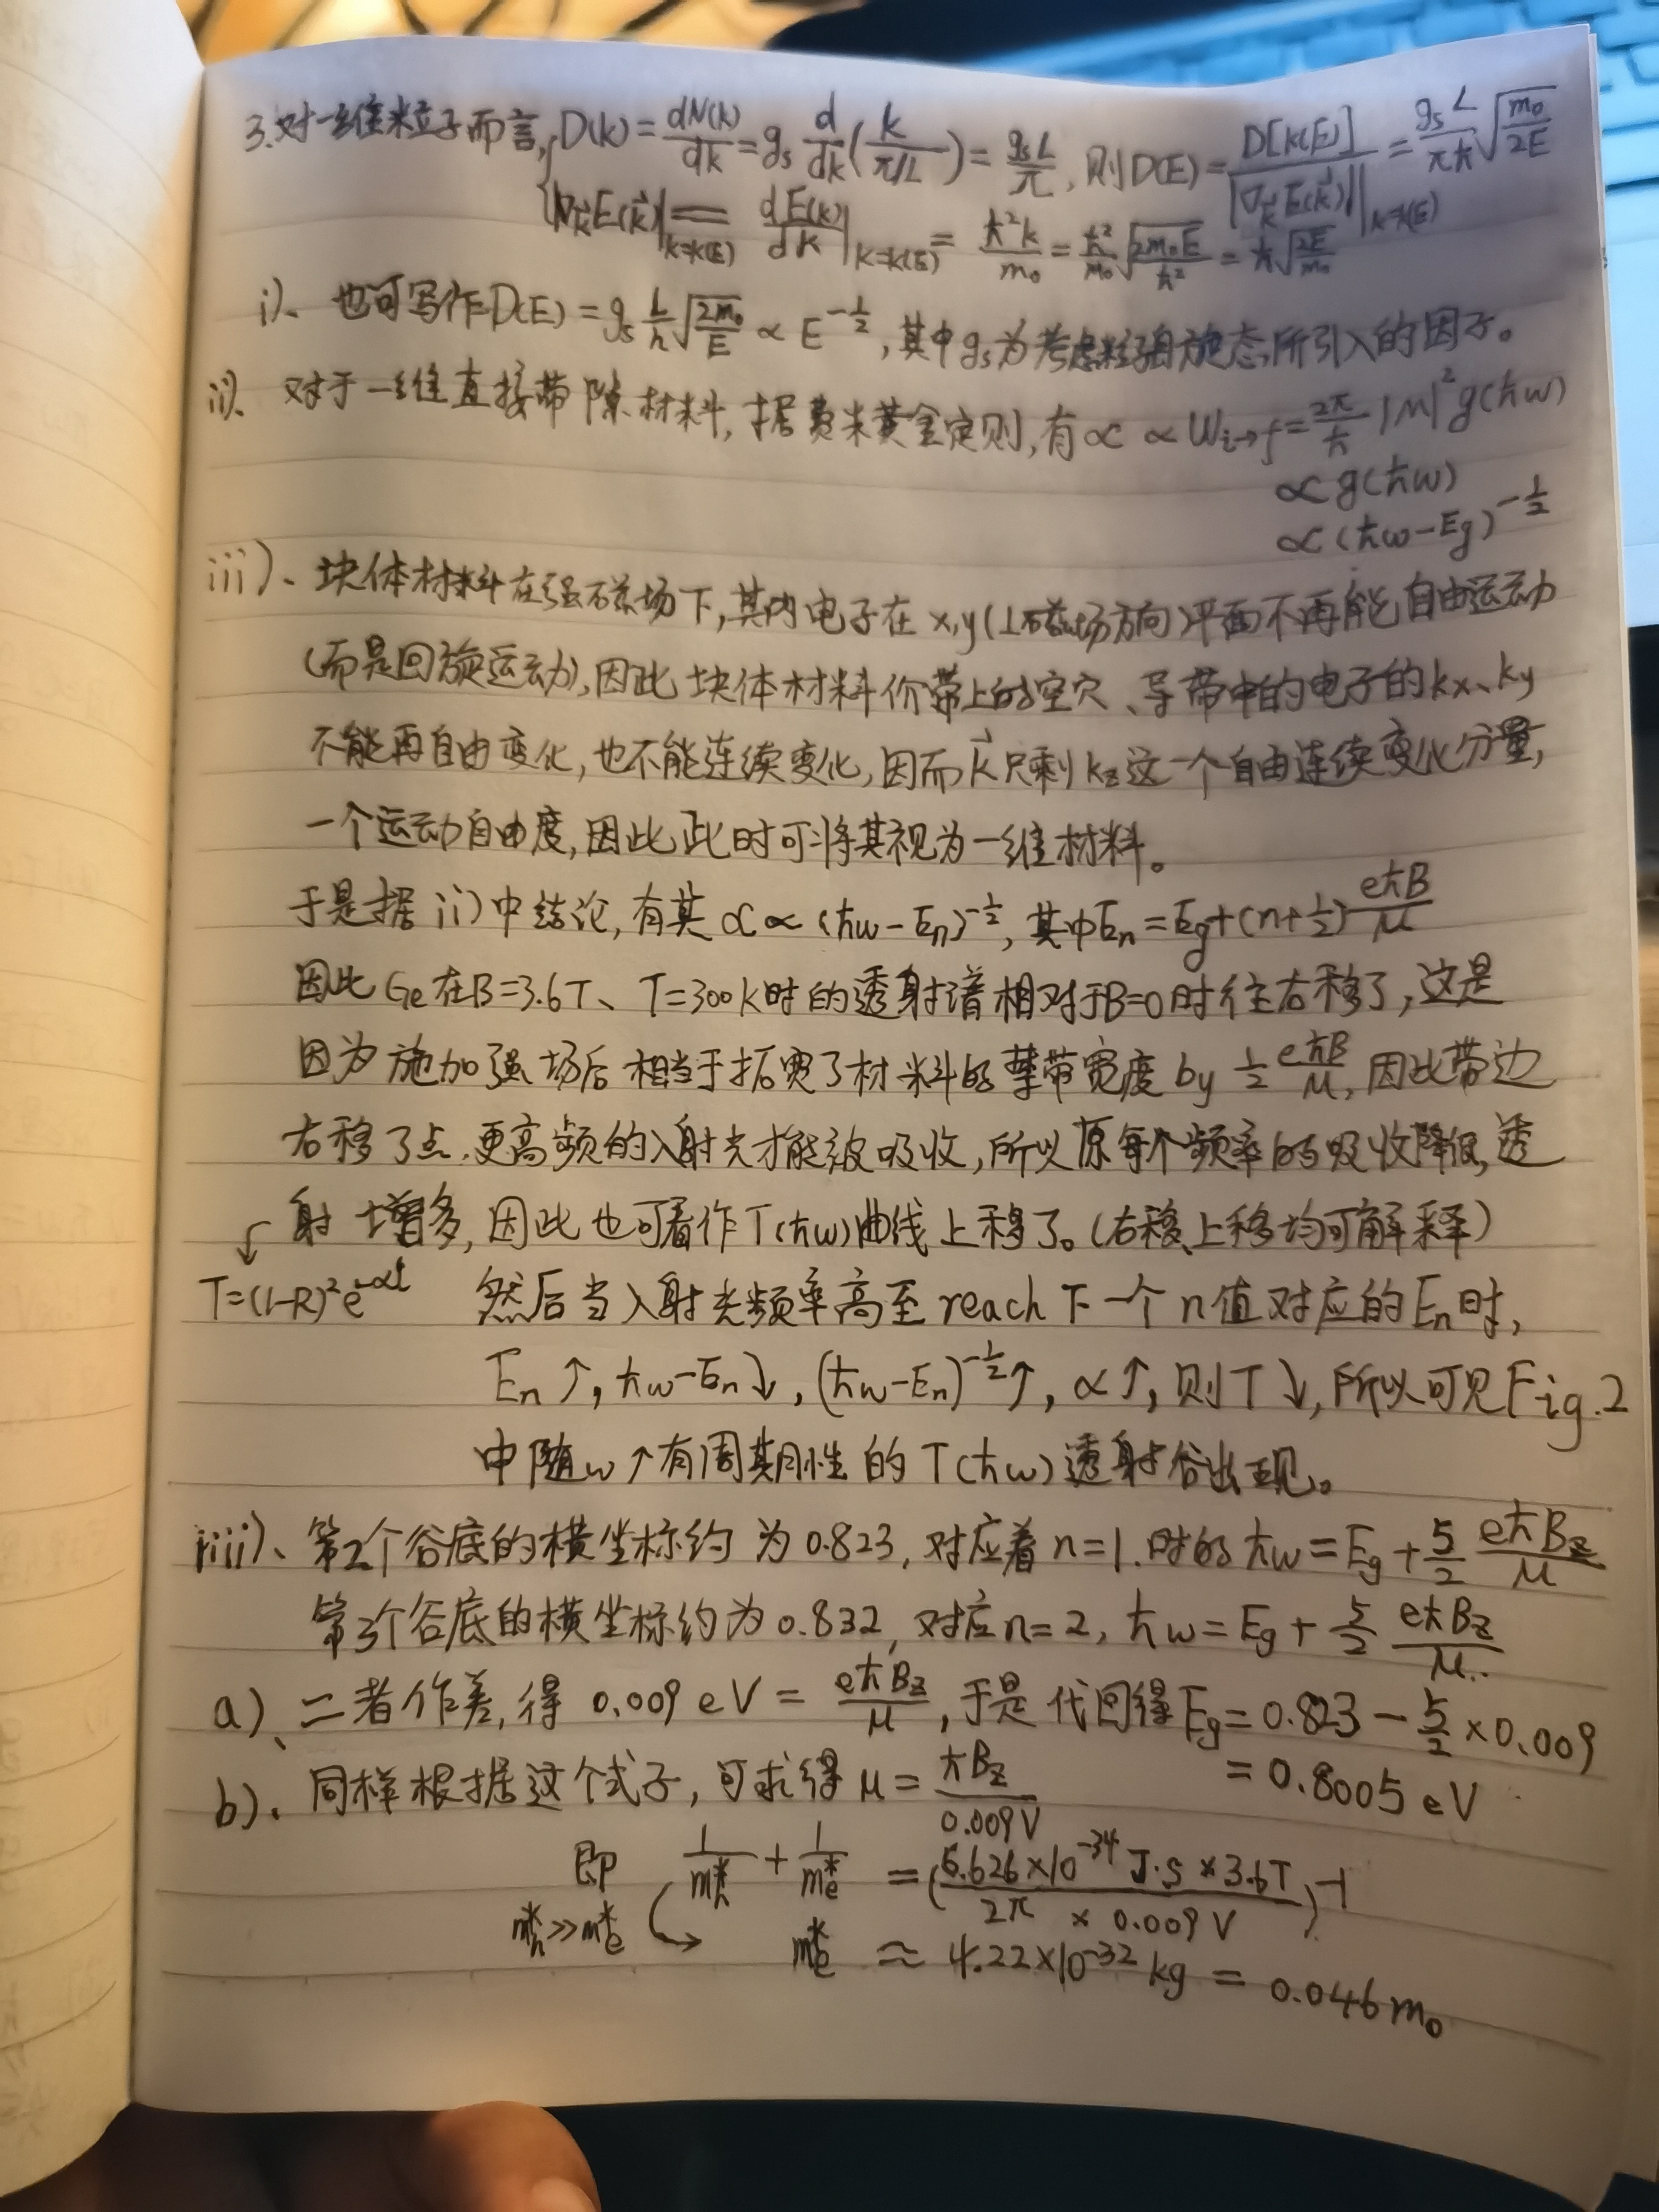 3.对一维粒子而言, D(k)=dN(k)/dk=g_s d/dk(k/(π/L))=g_sL/π, 则D(E)=D[k(E)]/|∇_k⃗E(k⃗)||_{k=k(E)}=g_sL/πħ √(m₀/2E)
|∇_k⃗E(k⃗)|_{k=k(E)}=dE(k)/dk|_{k=k(E)}=ħ²k/m₀=ħ²/m₀ √(2m₀E/ħ²)=ħ√(2E/m₀)
i)、也可写作D(E)=g_s L/h √(2m₀/E)∝E^{-1/2},其中g_s为考虑粒子自旋态所引入的因子。
ii)、对于一维直接带隙材料,据费米黄金定则,有α∝W_{i→f}=2π/ħ |M|²g(ħω)
∝g(ħω)
∝(ħω-Eg)^{-1/2}
iii)、块体材料在强磁场下,其内电子在x,y(⊥磁场方向)平面不再能自由运动
(而是回旋运动),因此块体材料价带上的空穴、导带中的电子的kx、ky
不能再自由变化,也不能连续变化,因而k⃗只剩kz这一个自由连续变化分量,
一个运动自由度,因此此时可将其视为一维材料。
于是据ii)中结论,有其α∝(ħω-En)^{-1/2},其中En=Eg+(n+1/2)eħB/μ
因此Ge在B=3.6T、T=300K时的透射谱相对于B=0时往右移了,这是
因为施加强场后相当于拓宽了材料的禁带宽度by 1/2 eħB/μ,因此带边
右移了点,更高频的入射光才能被吸收,所以原每个频率的吸收降低,透
射增多,因此也可看作T(ħω)曲线上移了。(右移、上移均可解释)
T=(1-R)²e^{-αl} 然后当入射光频率高至reach下一个n值对应的En时,
En↑,ħω-En↓,(ħω-En)^{-1/2}↑,α↑,则T↓,所以可见Fig.2
中随ω↑有周期性的T(ħω)透射谷出现。
iiii)、第2个谷底的横坐标约为0.823,对应着n=1.时的ħω=Eg+5/2 eħBz/μ
第3个谷底的横坐标约为0.832,对应n=2,ħω=Eg+5/2 eħBz/μ
a)、二者作差,得0.009eV=eħBz/μ,于是代回得Eg=0.823-5/2×0.009
=0.8005eV
b)、同样根据这个式子,可求得μ=ħBz/0.009V
即 1/m*_h+1/m*_e=(6.626×10^{-34}J·S×3.6T/2π×0.009V)^{-1}
m*_h≫m*_e m*_e≈4.22×10^{-32}kg=0.046m₀